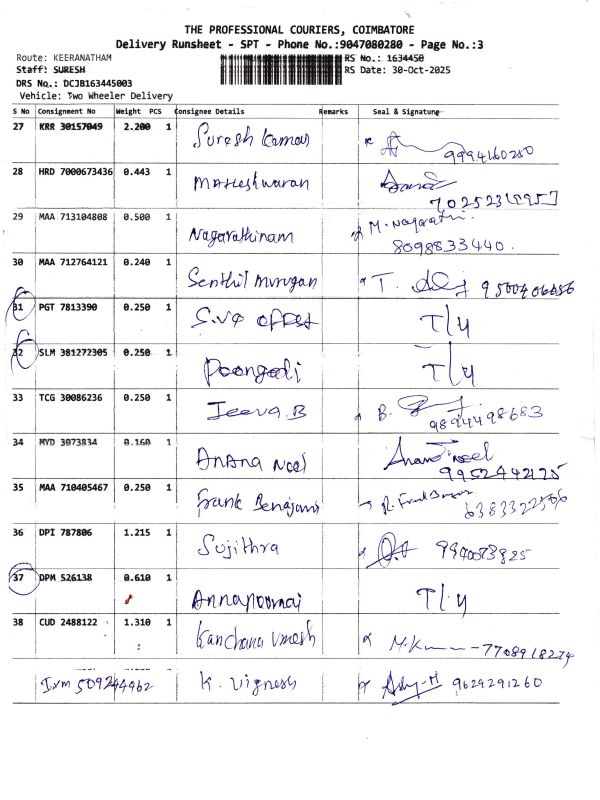 THE PROFESSIONAL COURIERS, COIMBATORE
Delivery Runsheet - SPT - Phone No.:9047080280 - Page No.:3
Route: KEERANATHAM RS No.: 1634450
Staff: SURESH RS Date: 30-Oct-2025
DRS No.: DCJB163445003
Vehicle: Two Wheeler Delivery
S No Consignment No Weight PCS Consignee Details Remarks Seal & Signature
27 KRR 30157049 2.200 1 Suresh Kumar 9994160250
28 HRD 7000673436 0.443 1 Maheshwaran
29 MAA 713104808 0.500 1 Nagarathinam M. Nagarathi.
8098833440.
30 MAA 712764121 0.240 1 Senthil Murugan T. 9500406656
31 PGT 7813390 0.250 1 T/4
32 SLM 381272305 0.250 1 Poongodi T/4
33 TCG 30086236 0.250 1 Jeeva.B B.
9894498683
34 MYD 3073834 0.160 1 Anand Noel Anand Noel
9952442125
35 MAA 710405467 0.250 1 Frank Benajami
36 DPI 787806 1.215 1 Sujithra
37 DPM 526138 0.610 1 Annapoornai T/4
38 CUD 2488122 1.310 1 Kanchana Umesh M.K -7708918274
Ixm 509244462 K. Vignesh 9629291260